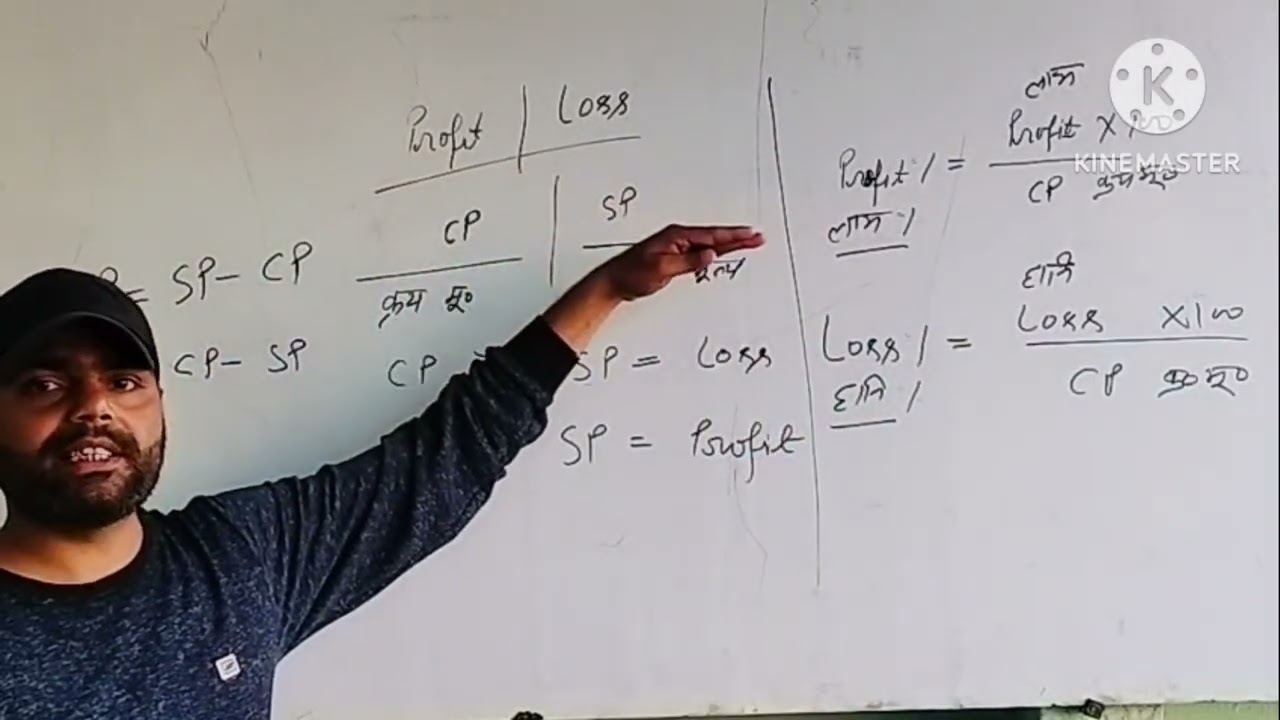 Profit | Loss
CP | SP
क्रय मू०
= SP - CP
CP - SP
CP SP = Loss
SP = Profit
लाभ
Profit % = Profit X
लाभ % CP क्रय मू०
हानि
Loss % = Loss X100
हानि % CP क्र० मू०
KINEMASTER